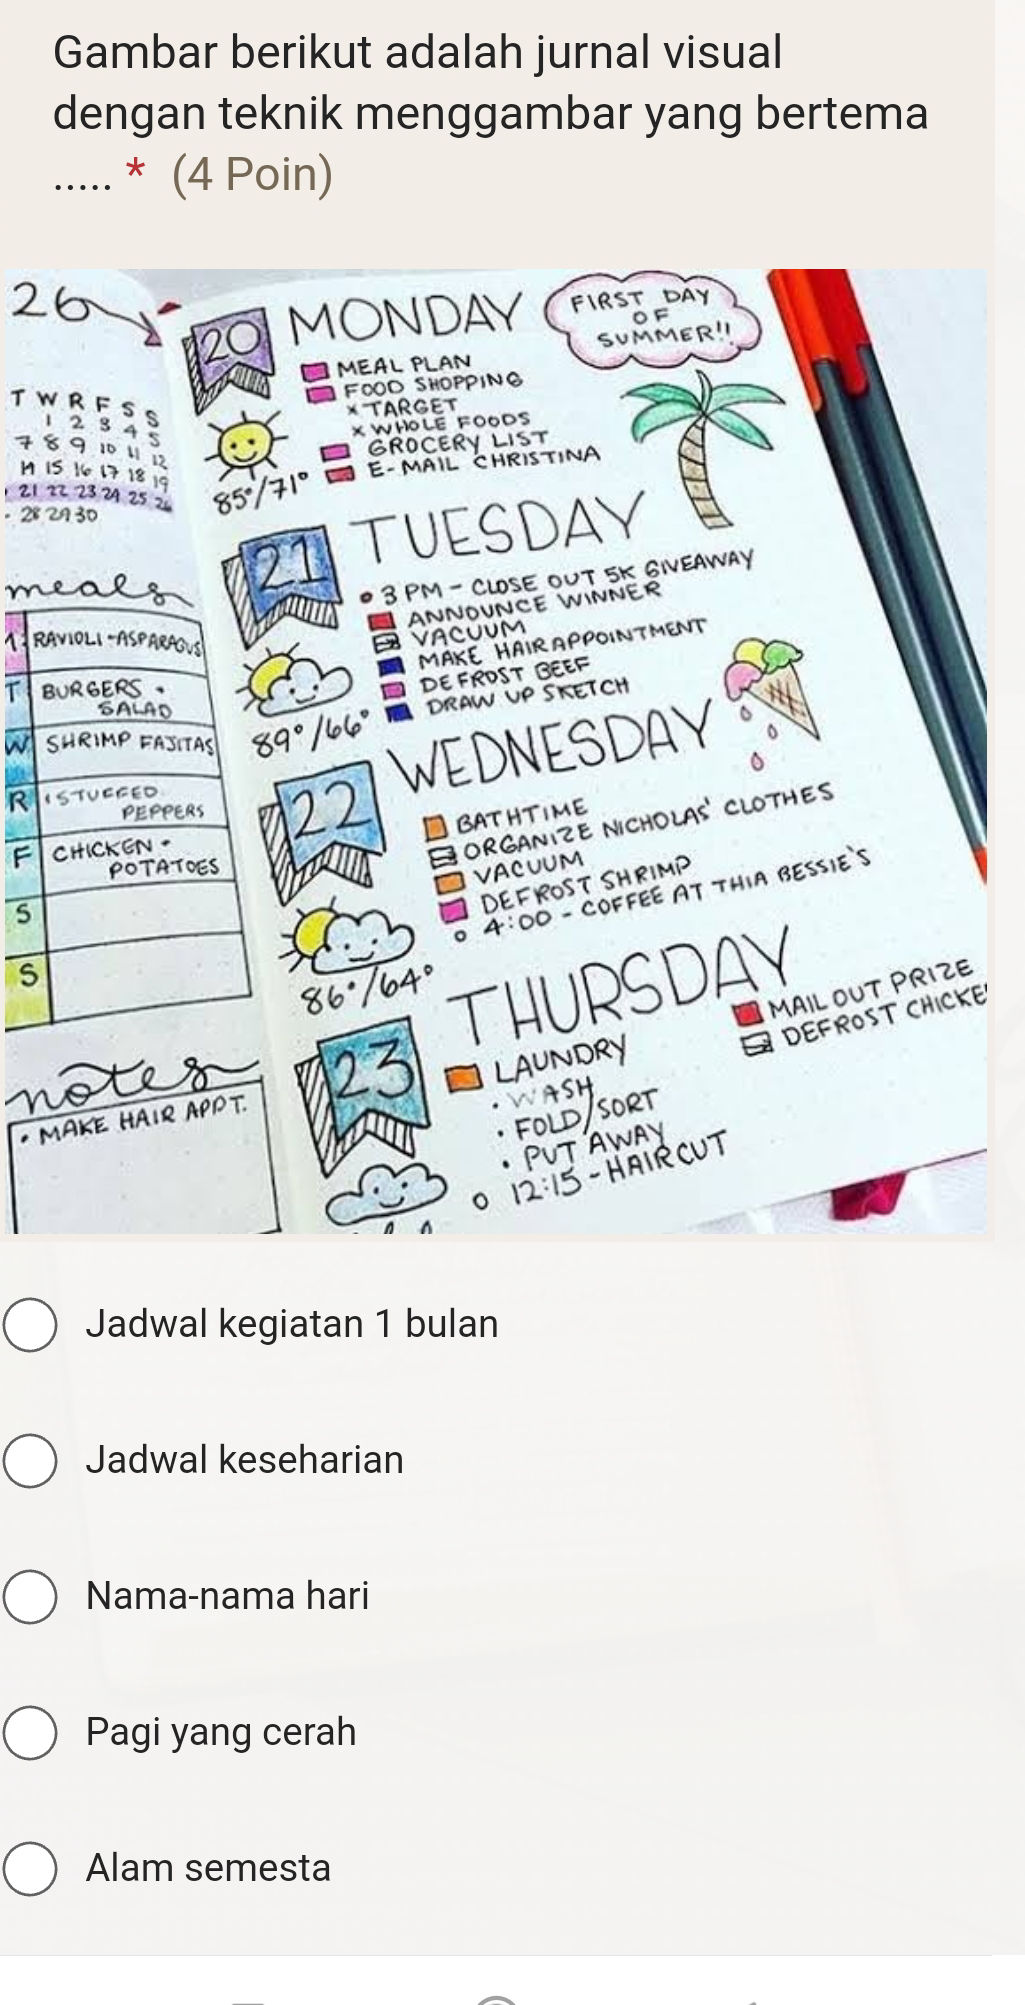 Gambar berikut adalah jurnal visual
dengan teknik menggambar yang bertema
..... * (4 Poin)
26
T W R F S S
1 2 3 4 5
7 8 9 10 11 12
14 15 16 17 18 19
21 22 23 24 25 26
28 29 30
meals
RAVIOLI - ASPARAGUS
T BURGERS •
SALAD
W SHRIMP FAJITAS
R STUFFED
PEPPERS
F CHICKEN •
POTATOES
S
S
notes
• MAKE HAIR APPT.
20 MONDAY
FIRST DAY
OF
SUMMER!!
MEAL PLAN
FOOD SHOPPING
x TARGET
x WHOLE FOODS
GROCERY LIST
E-MAIL CHRISTINA
85°/71°
21 TUESDAY
• 3 PM - CLOSE OUT 5K GIVEAWAY
ANNOUNCE WINNER
VACUUM
MAKE HAIR APPOINTMENT
DEFROST BEEF
DRAW UP SKETCH
89°/66°
22 WEDNESDAY
BATHTIME
ORGANIZE NICHOLAS' CLOTHES
VACUUM
DEFROST SHRIMP
o 4:00 - COFFEE AT THIA BESSIE'S
86°/64°
23 THURSDAY
LAUNDRY
• WASH
• FOLD/SORT
• PUT AWAY
o 12:15 - HAIRCUT
MAIL OUT PRIZE
DEFROST CHICKE
Jadwal kegiatan 1 bulan
Jadwal keseharian
Nama-nama hari
Pagi yang cerah
Alam semesta